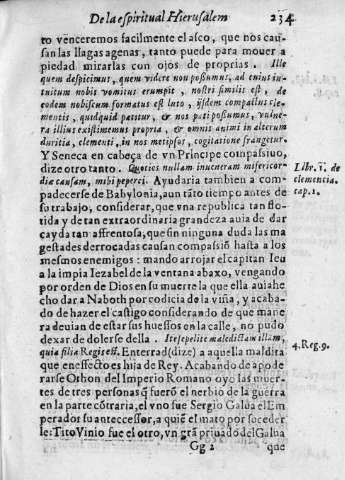 De la espiritual Hierusalem 234
to venceremos facilmente el asco, que nos cau-
san las llagas agenas, tanto puede para mouer a
piedad mirarlas con ojos de proprias. Ille
quem despicimus, quem videre non possumus, ad cuius in-
tuitum nobis vomitus erumpit, nostri similis est, de
eodem nobiscum formatus est luto, ijsdem compactus ele-
mentis, quidquid patitur, & nos pati possumus, vulne-
ra illius existimemus propria, & omnis animi in alterum
duritia, clementi, in nos metipsos, cogitatione frangetur.
Y Seneca en cabeça de vn Principe compassiuo,
dize otro tanto. Quoties nullam inueneram misericor-
diæ causam, mihi peperci. Ayudaria tambien a com-
padecerse de Babylonia, aun tãto tiempo antes de
su trabajo, considerar, que vna republica tan flo-
rida y de tan extraordinaria grandeza auia de dar
cayda tan affrentosa, que sin ninguna duda las ma
gestades derrocadas causan compassiõ hasta a los
mesmos enemigos: mando arrojar el capitan Ieu
a la impia Iezabel de la ventana abaxo, vengando
por orden de Dios en su muerte la que ella auia he
cho dar a Naboth por codicia de la viña, y acaba-
do de hazer el castigo considerando de que mane
ra deuian de estar sus huessos en la calle, no pudo
dexar de dolerse della. Ite sepelite maledictam illam,
quia filia Regis est. Enterrad (dize) a aquella maldita
que en effecto es hija de Rey. Acabando de apode
rarse Othon del Imperio Romano oyo las muer-
tes de tres personas q̃ fuerõ el nerbio de la guerra
en la parte cõtraria, el vno fue Sergio Galua el Em
perador su antecessor, a quiẽ el mato por suceder
le: Tito Vinio fue el otro, vn grã priuado del Galua
Gg 2 que
Libr. 1. de
clemencia.
cap. 1.
4. Reg. 9.